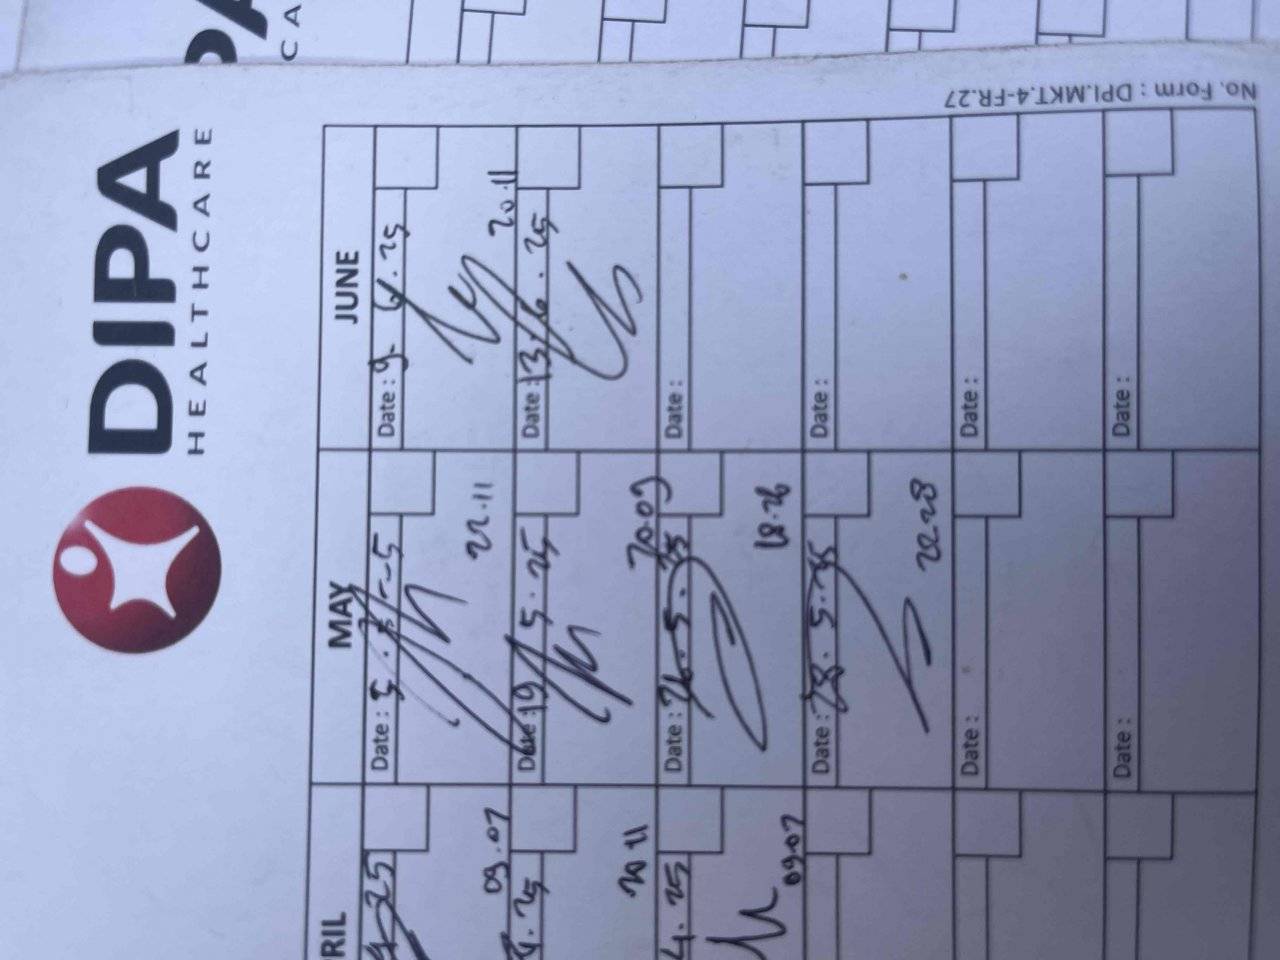 CA
DIPA
HEALTHCARE
No. Form : DPI.MKT.4-FR.27
RIL
MAY
JUNE
25
09.07
Date : 5.5.25
22.11
Date : 9.6.25
20.11
4.25
20 11
Date : 19.5.25
20.09
Date : 13.6.25
4.25
09.07
Date : 26.5.25
18.26
Date :
Date : 28.5.25
22.28
Date :
Date :
Date :
Date :
Date :